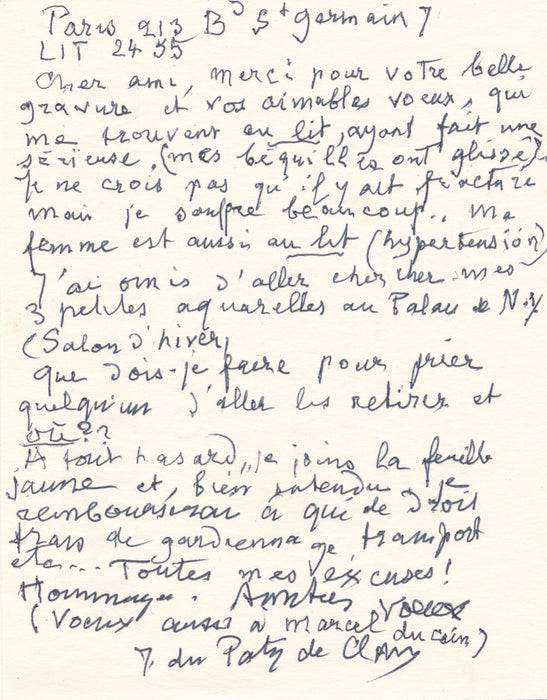 Paris 213 Bd St Germain 7
LIT 24 35
Cher ami, merci pour votre belle
gravure et vos aimables voeux, qui
me trouvent au lit, ayant fait une
sérieuse, (mes béquilles ont glissé).
Je ne crois pas qu'il y ait fracture
mais je souffre beaucoup.. Ma
femme est aussi au lit (hypertension)
J'ai omis d'aller chercher mes
3 petites aquarelles au Palais de N.Y
(Salon d'hiver)
Que dois-je faire pour prier
quelqu'un d'aller les retirer et
où??
A tout hasard, je joins la feuille
jaune et, bien entendu je
rembourserai à que de droit
frais de gardiennage, transport
etc... Toutes mes excuses!
Hommages. Amitiés voeux
(Voeux aussi à Marcel du coin)
J. du Paty de Clam